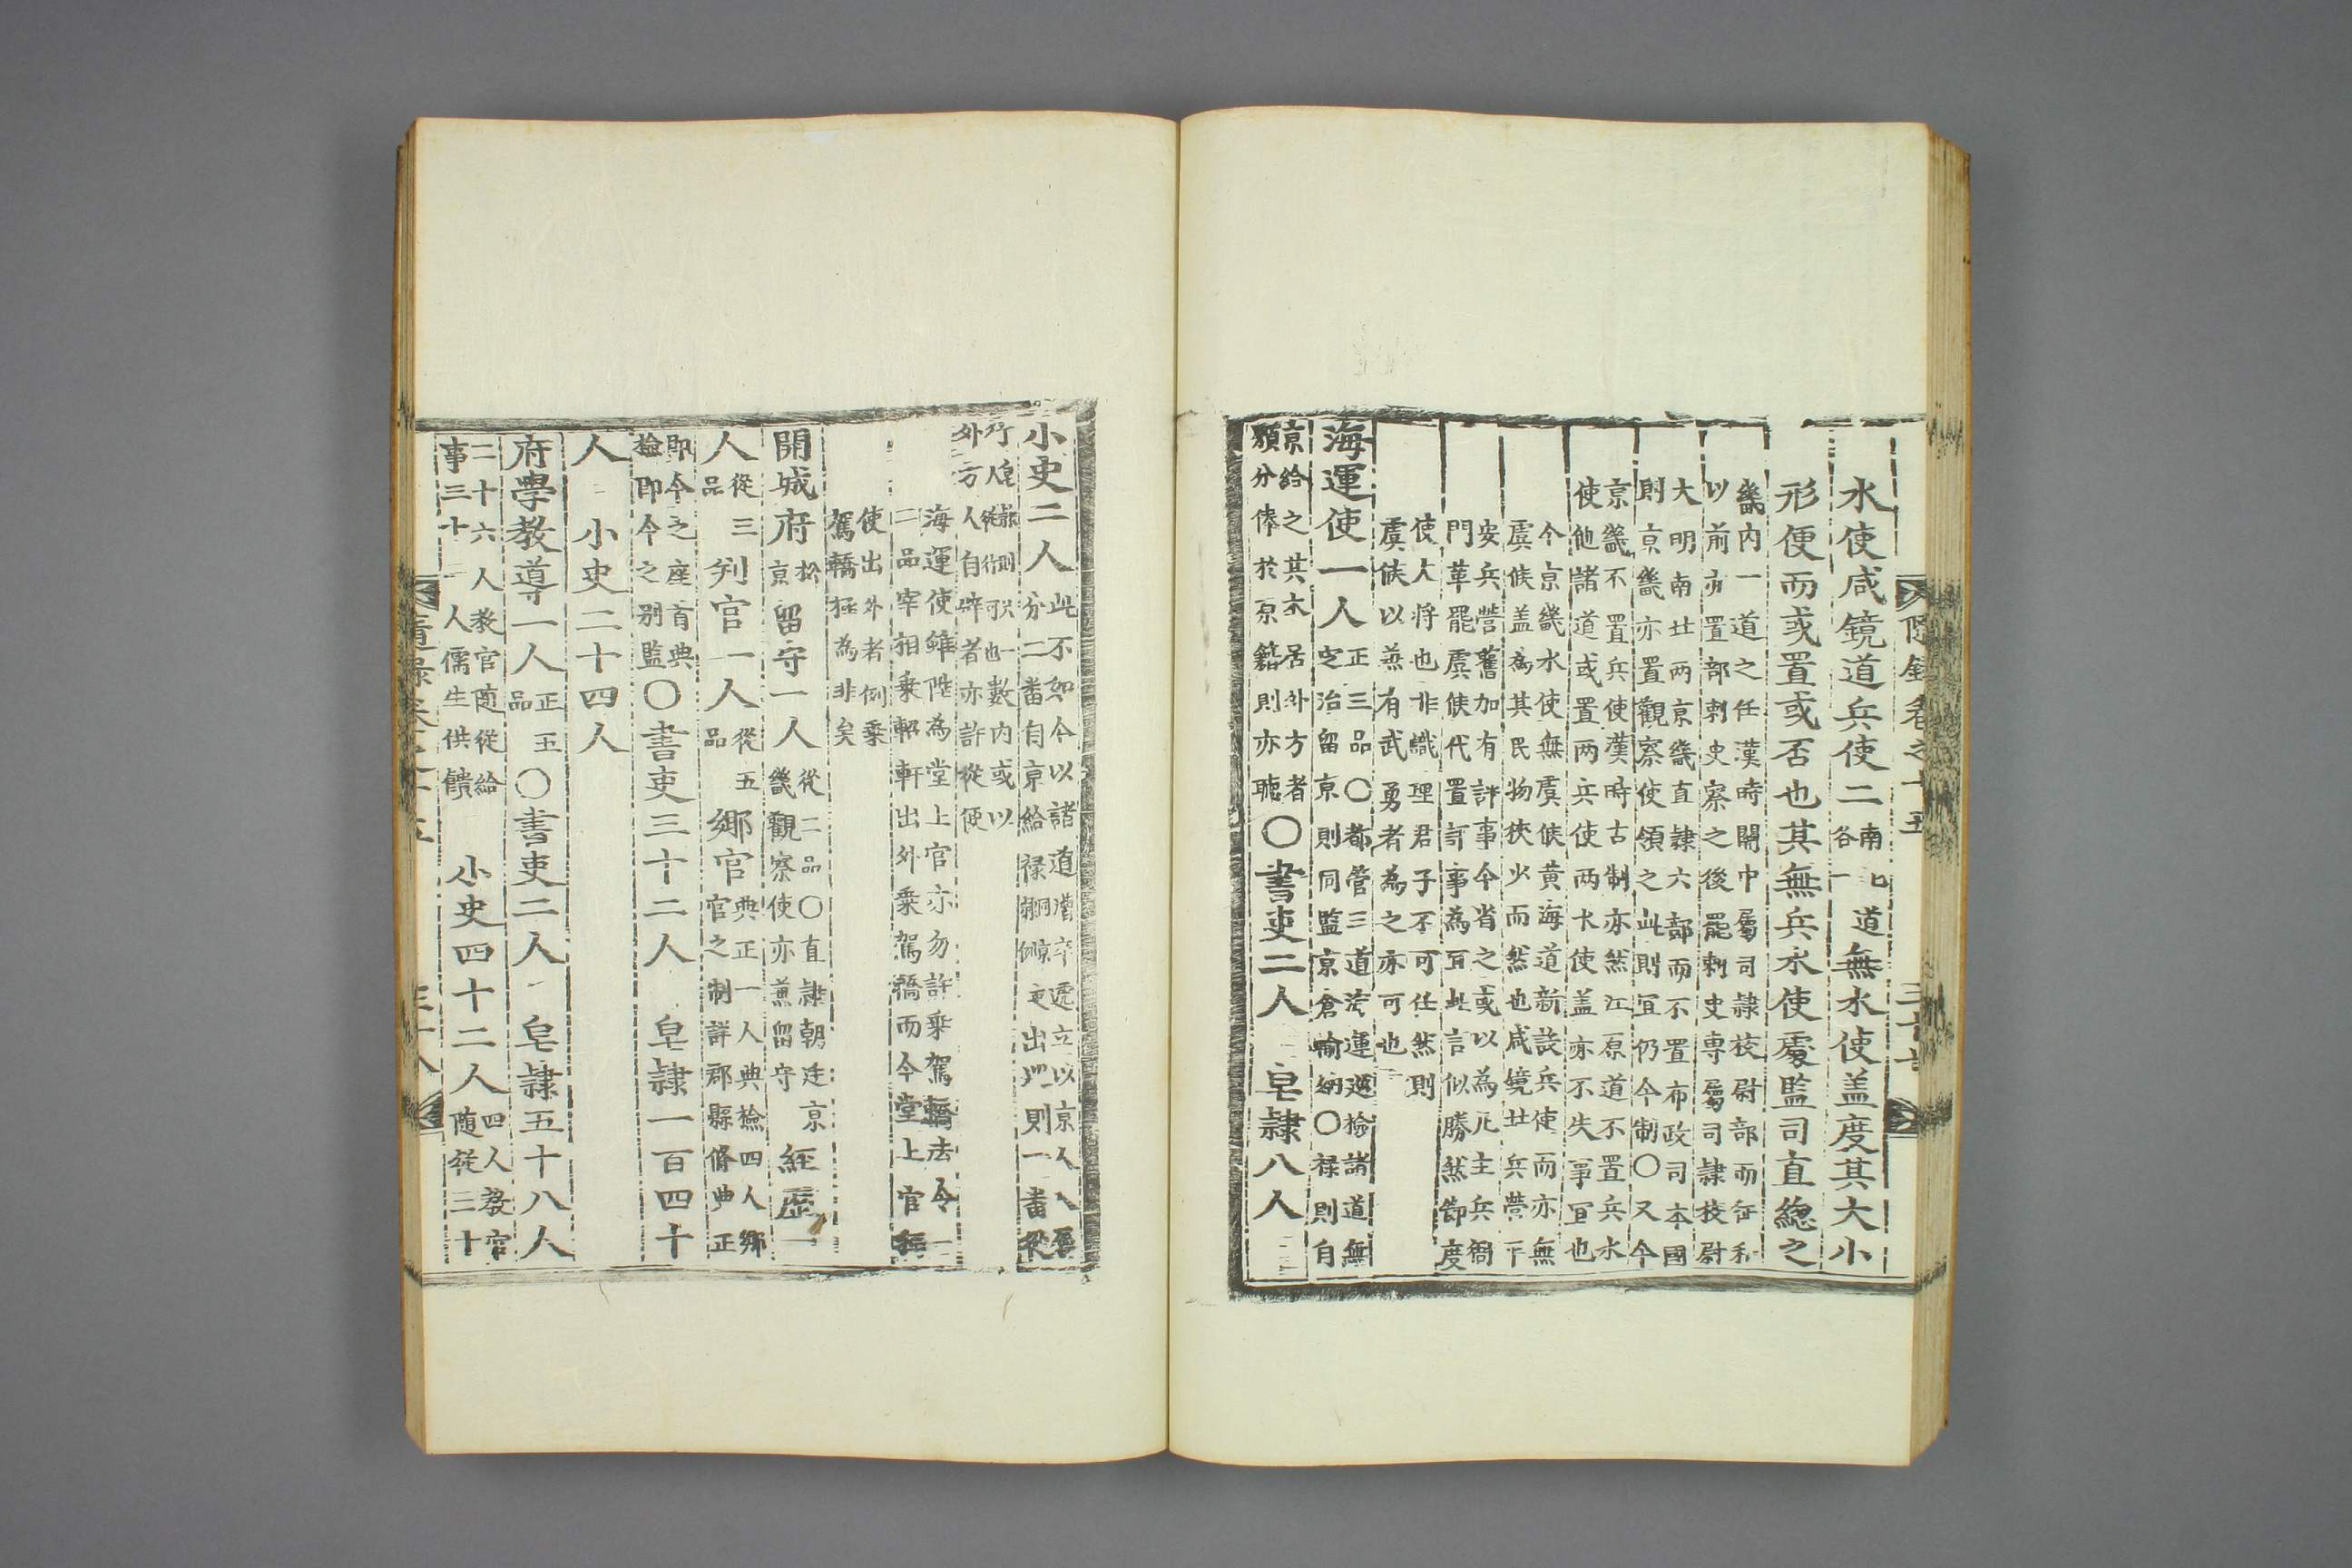 水使咸鏡道兵使二南北道各一無水使盖度其大小
形便而或置或否也其無兵水使處監司直緫之
畿內一道之任漢時關中屬司隷校尉部而征和
以前亦置部刺史察之後罷刺史專屬司隷校尉
大明南北兩京畿直隷六部而不置布政司本國
則京畿亦置觀察使領之此則宜仍今制〇又今
京畿不置兵使漢時古制亦然江原道不置兵水
使他諸道或置兩兵使兩水使盖亦不失事宜也
今京畿水使無虞候黄海道新設兵使而亦無
虞候盖爲其民物狹少而然也咸鏡北兵營平
安兵營舊加有評事今省之或以為凡主兵衙
門革罷虞候代置評事為可此言似勝然節度
使大將也非識理君子不可任然則
虞候以兼有武勇者為之亦可也
海運使一人正三品〇都管三道漕運巡檢諸道無定治留京則同監京倉輸納〇祿則自
京給之其不居外方者願分俸於京籍則亦聽〇書吏二人 皂隷八人
隨錄卷之十五
小吏二人此不如今以諸道漕卒遞立以京人分二畨自京給祿出則一畨
行可也一數内或以
外方人自辟者亦許從便
海運使雖陞為堂上官亦勿許乗駕轎法令一
二品宰相乗軺軒出外乗駕轎而今堂上官
使出外者例乗
駕轎極為非矣
開城府松京留守一人從二品〇直隷朝廷京畿觀察使亦兼留守 經歷一
人從三品 判官一人從五品 鄉官典正一人典檢四人鄉官之制詳郡縣條典正
即今之座首典檢即今之别監〇書吏三十二人 皂隷一百四十
人 小史二十四人
府學教導一人正五品〇書吏二人 皂隷五十八人
二十六人教官随從給事三十二人儒生供饋 小史四十二人四人教官随從二十